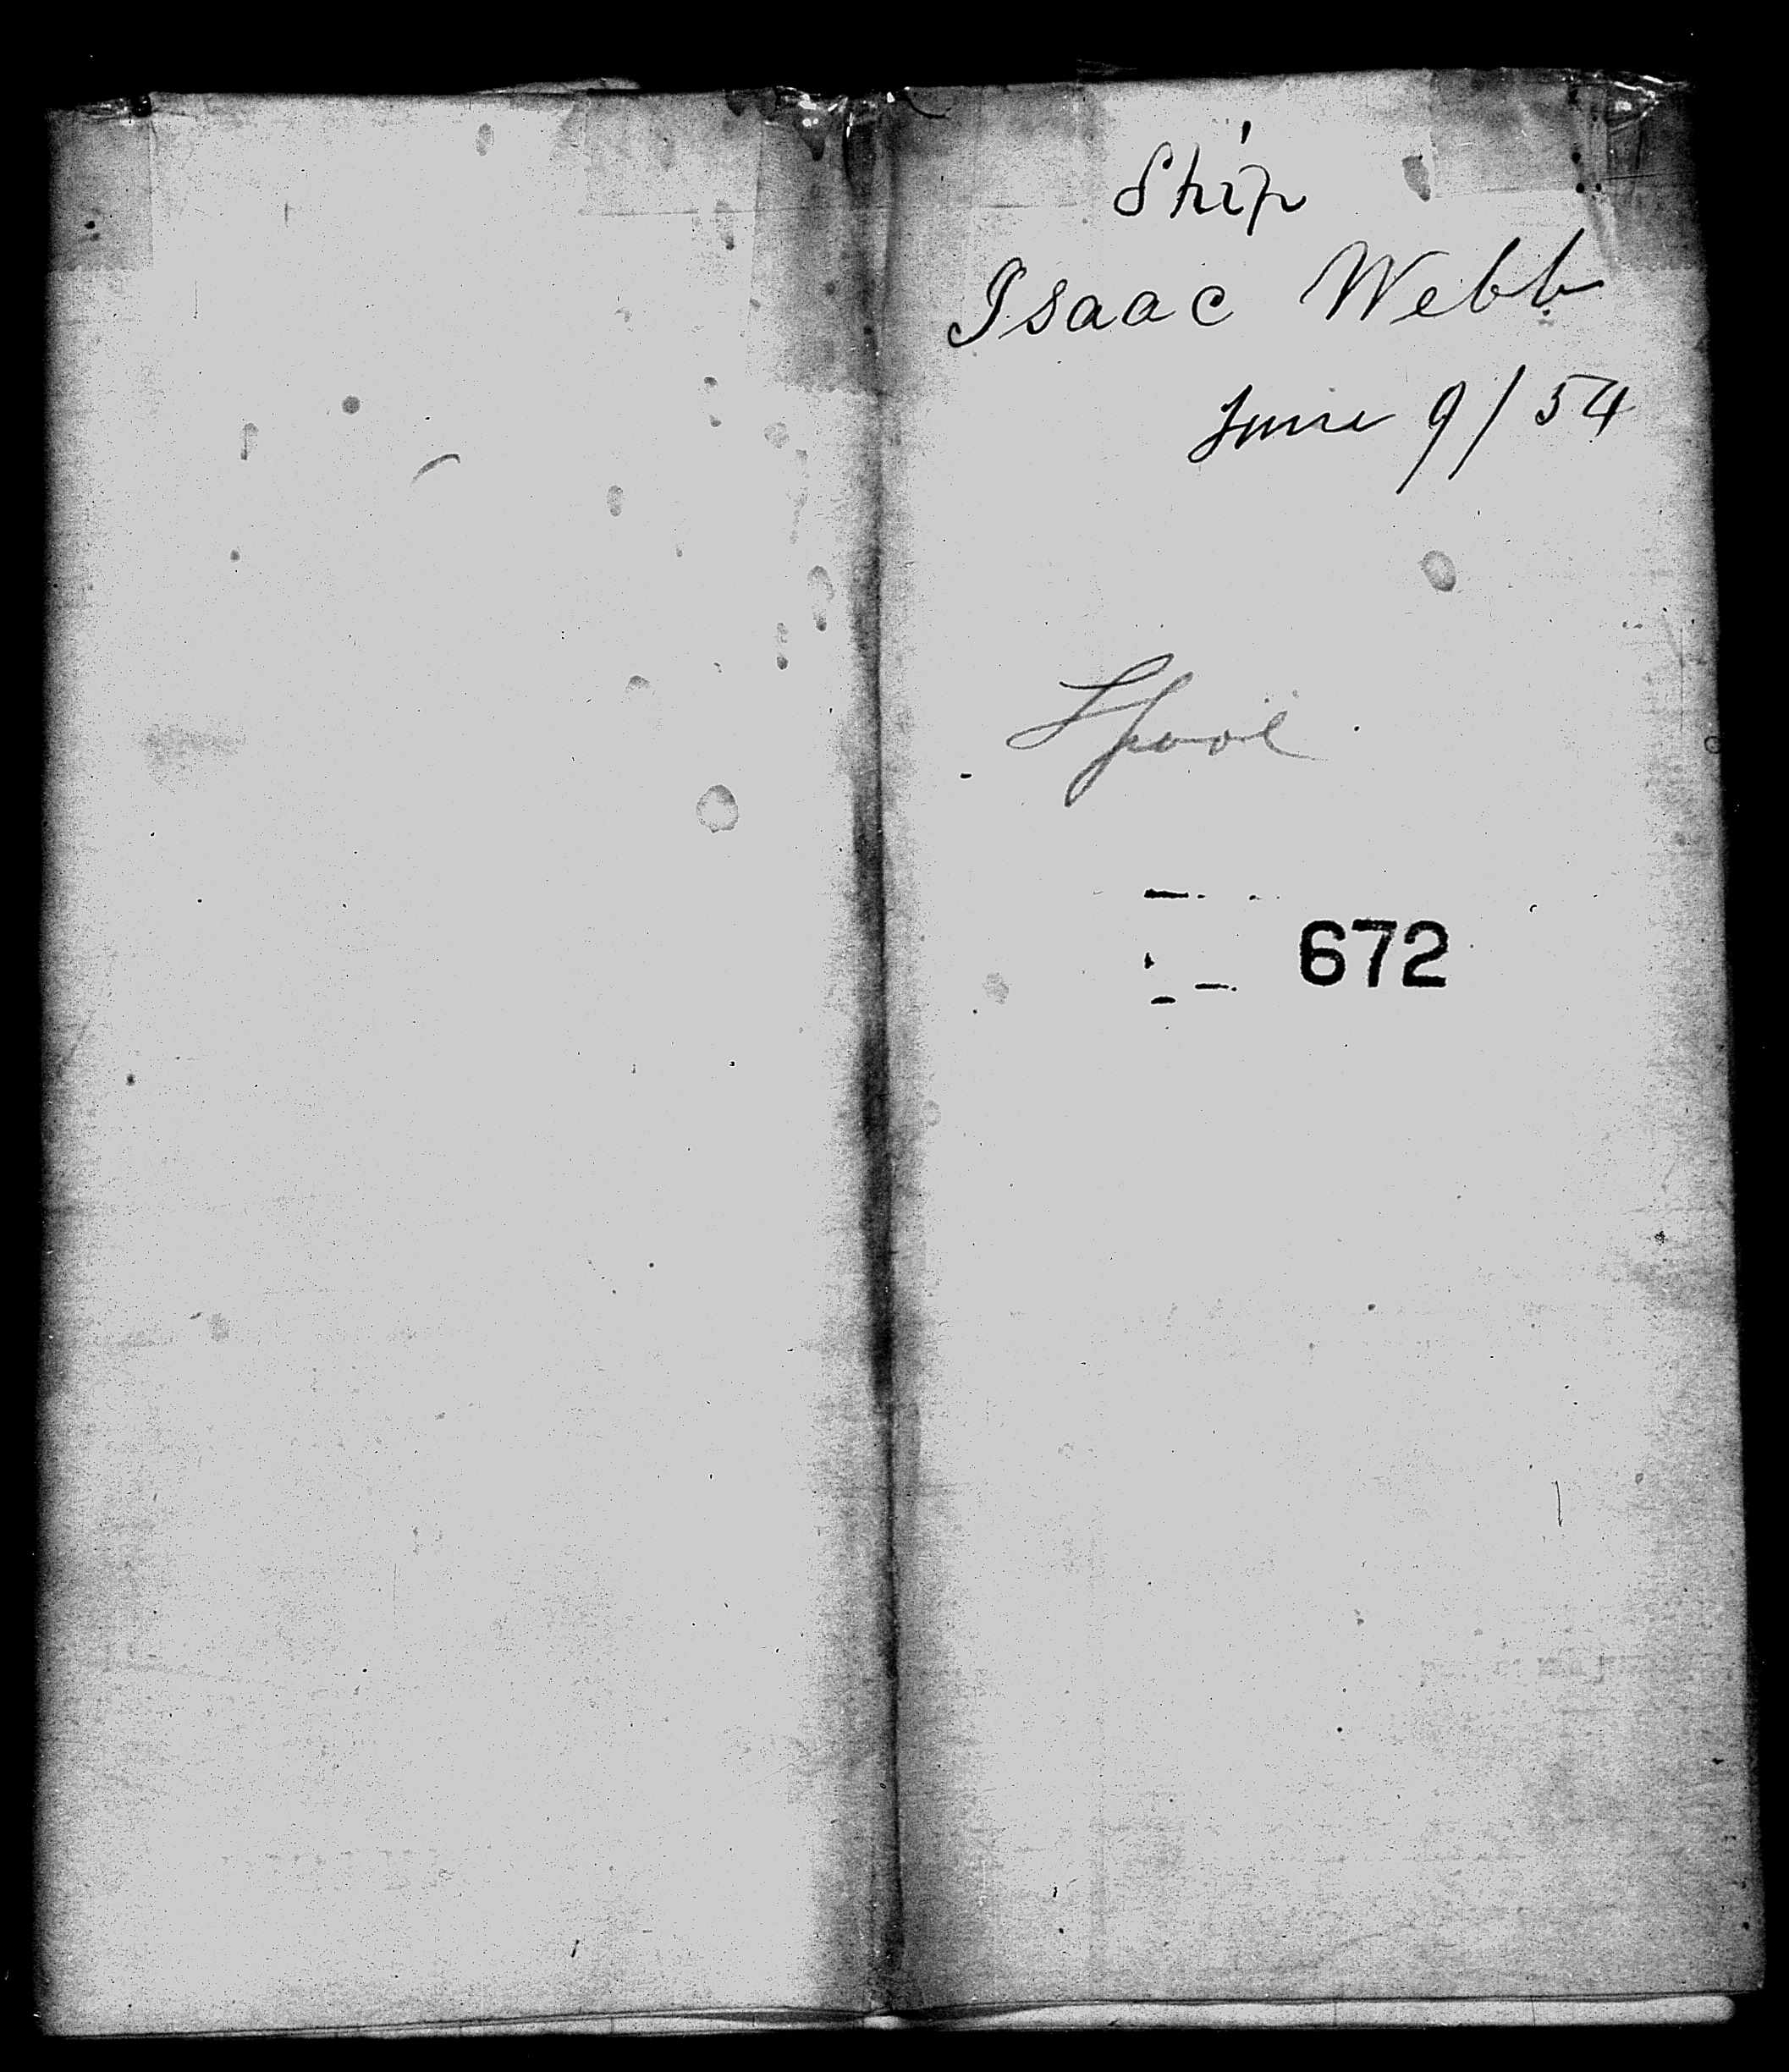 Ship
Isaac Webb
June 9/54
Lpool
672